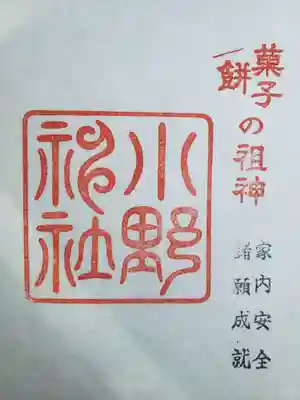 菓子の祖神
餅
家内安全
諸願成就
小野
神社